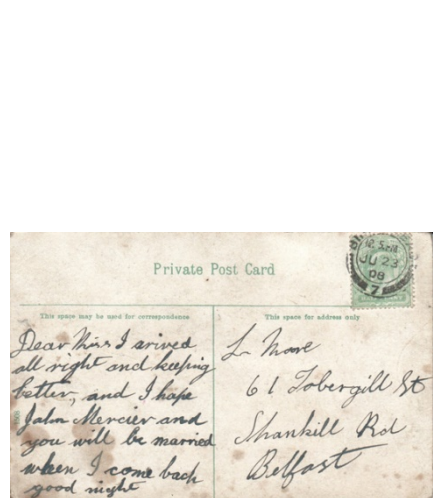 Private Post Card
12.5 PM
JU 23
08
7
This space may be used for correspondence
This space for address only
Dear Miss I arived
all right and keeping
better, and I hope
John Mercier and
you will be married
when I come back
good night
L More
61 Tobergill St
Shankill Rd
Belfast